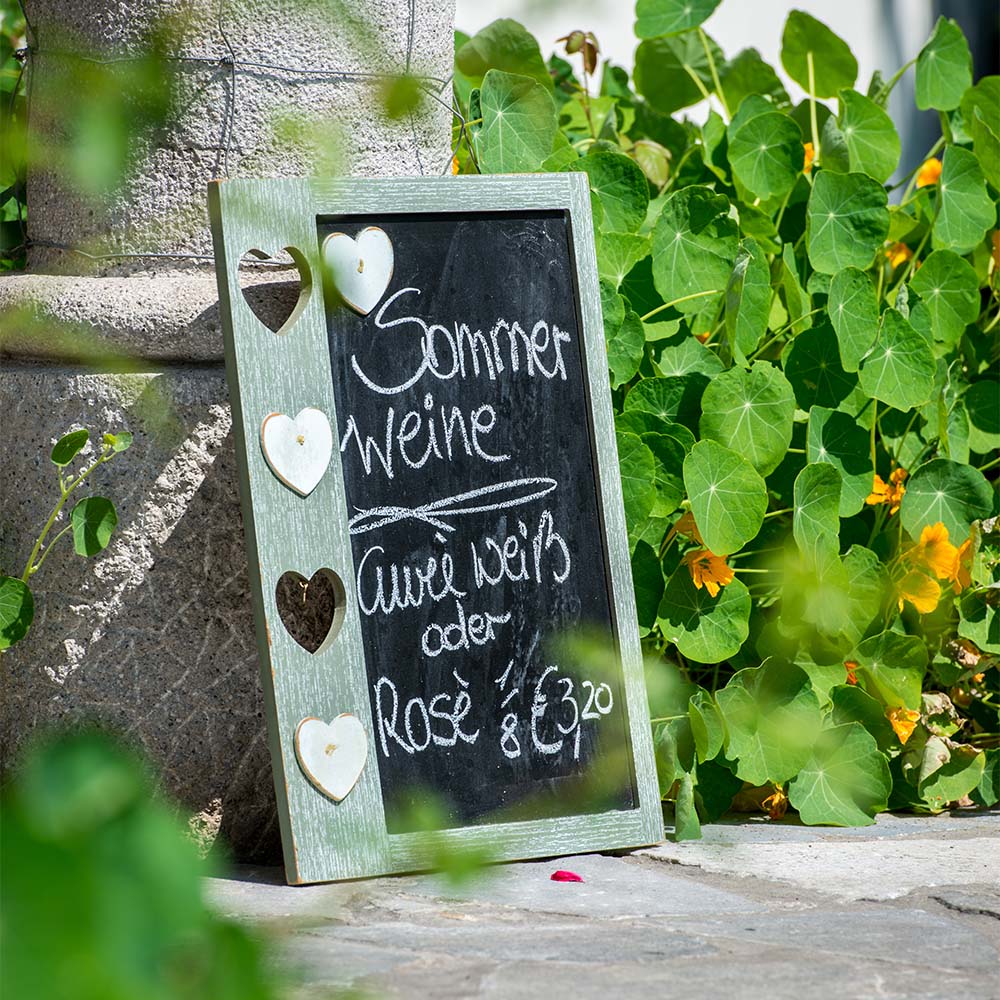 Sommer
Weine
Cuvèe weiß
oder
Rosè 1/8 €3,20